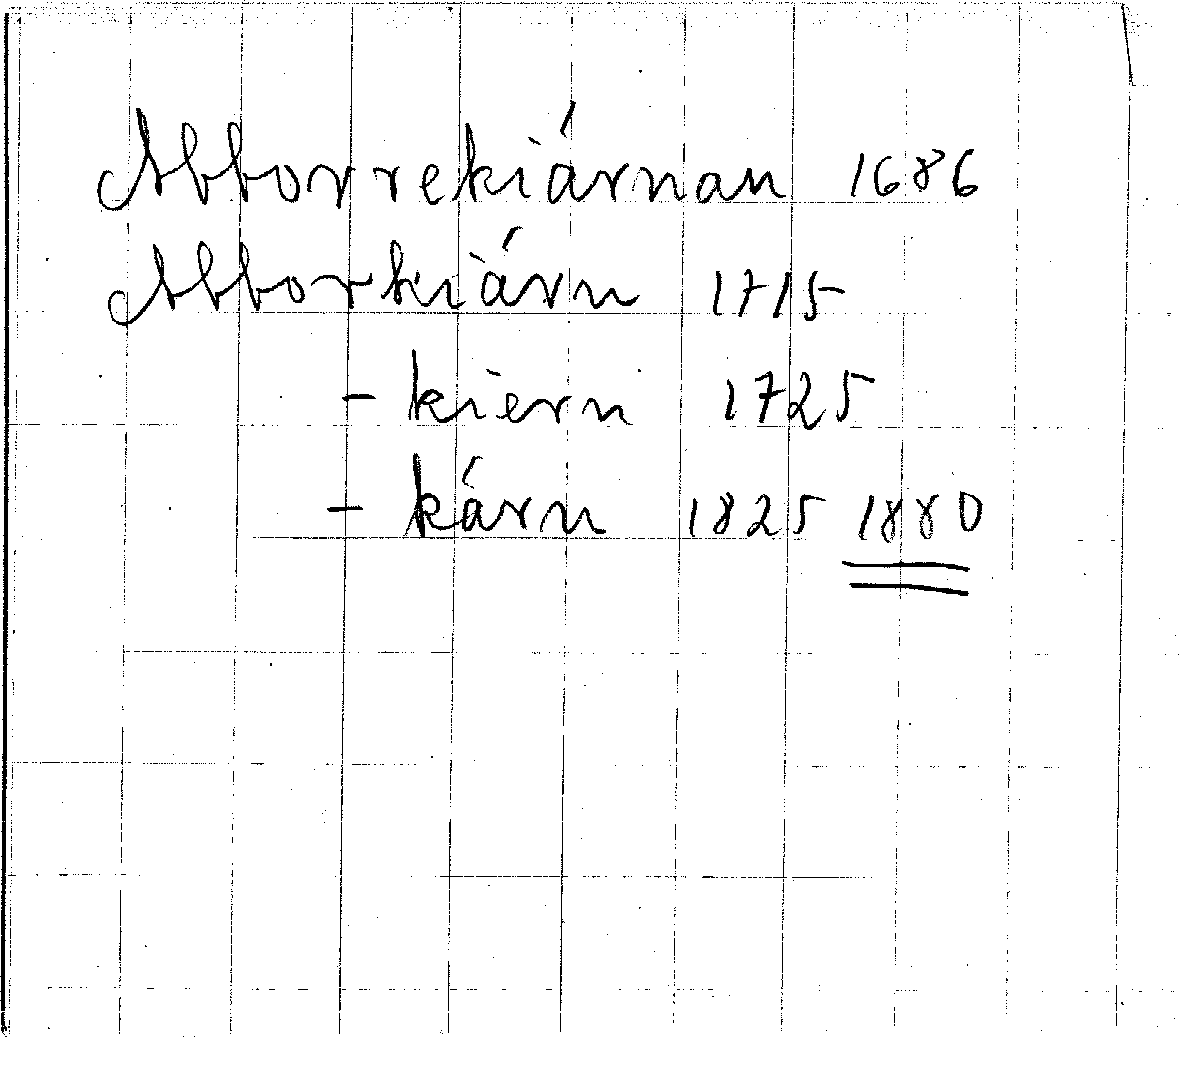 Abborrekiárnan 1686
Abborkiárn 1715
- kiern 1725
- kárn 1825 1880